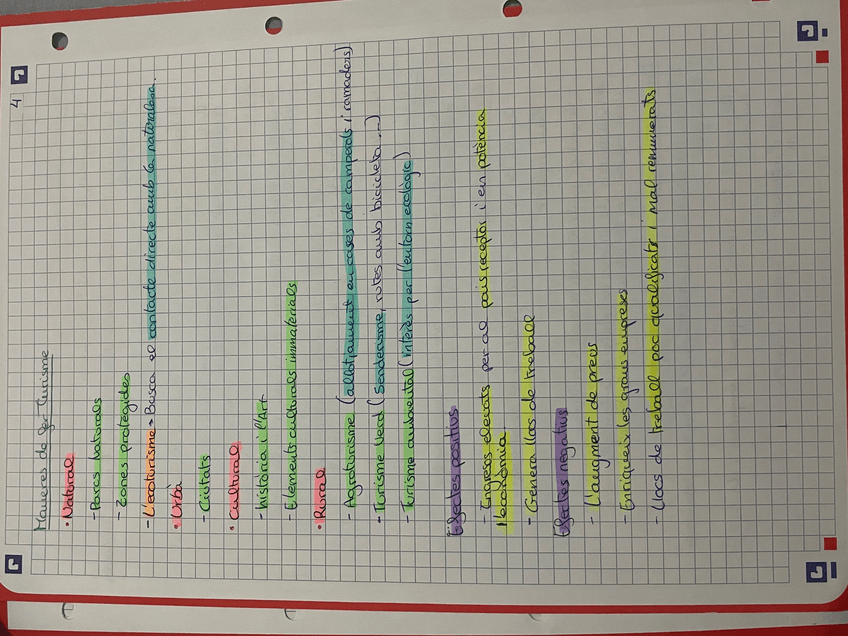 4
Maneres de fer Turisme
• Natural
- Parcs Naturals
- Zones protegides
- L'ecoturisme → Busca el contacte directe amb la naturalesa.
• Urbà
- Ciutats
• Cultural
- història i l'Art
- Elements culturals immaterials
• Rural
- Agroturisme (allotjament en cases de camperols i ramaders)
- Turisme Verd (Senderisme, rutes amb bicicleta...)
- Turisme ambiental (interès per l'entorn ecològic)
Efectes positius
- Ingresos elevats per al país receptor i en potència
l'economia
- Genera llocs de treball
Efectes negatius
- L'augment de preus
- Enriqueix les grans empreses
- Llocs de treball poc qualificats i mal remunerats